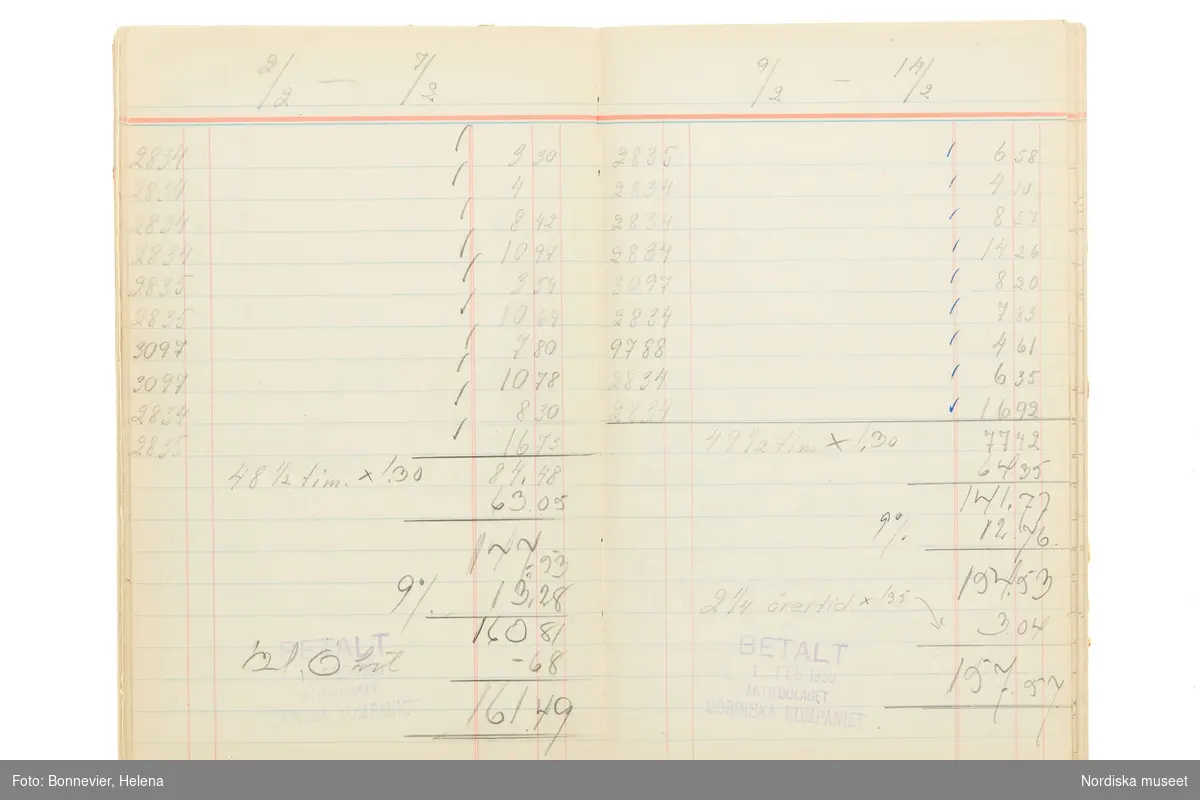 2/2 — 7/2
2834 3 30
2834 4
2834 8 42
2834 10 97
2835 3 54
2835 10 64
3097 7 80
3097 10 78
2834 8 30
2835 16 73
48 1/2 tim. x 1.30 84.48
63.05
147.53
9% 13.28
160 81
BETALT
-68
KOMPANIET
161.49
9/2 — 14/2
2835 6 58
2834 4 10
2834 8 57
2834 14 26
3097 8 20
2834 7 83
9788 4 61
2834 6 35
2834 16 92
49 1/2 tim. x 1.30 77 42
64 35
141.77
9%. 12.76.
154.53
2 1/4 övertid x 1.35 3.04
BETALT
FEB 1933
AKTIEBOLAGET
NORDISKA KOMPANIET
157.57
Foto: Bonnevier, Helena
Nordiska museet